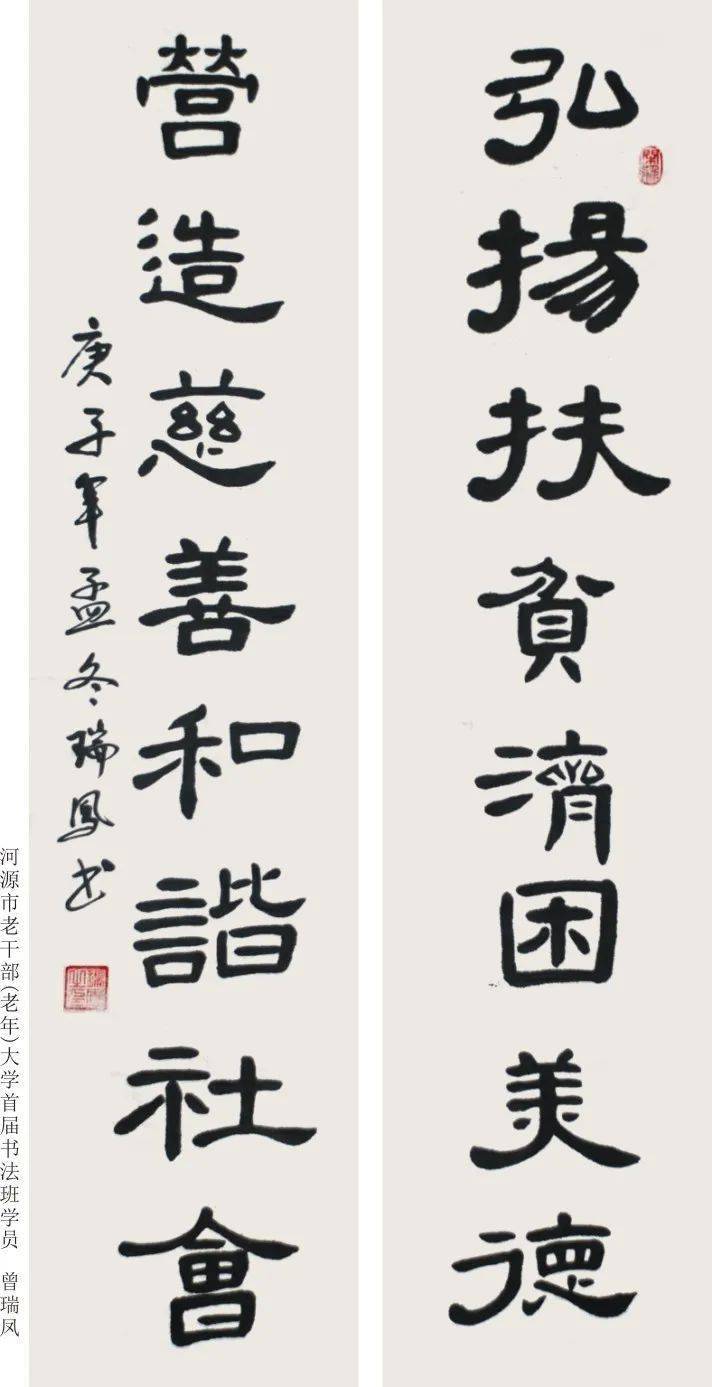 弘揚扶貧濟困美德
營造慈善和諧社會
庚子年孟冬瑞鳳书
河源市老干部(老年)大学首届书法班学员 曾瑞凤